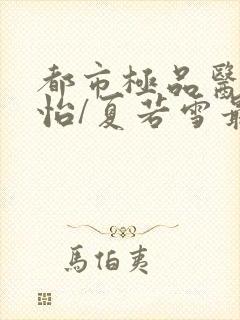 都市極品醫
怡/夏若雪最
馬伯夷